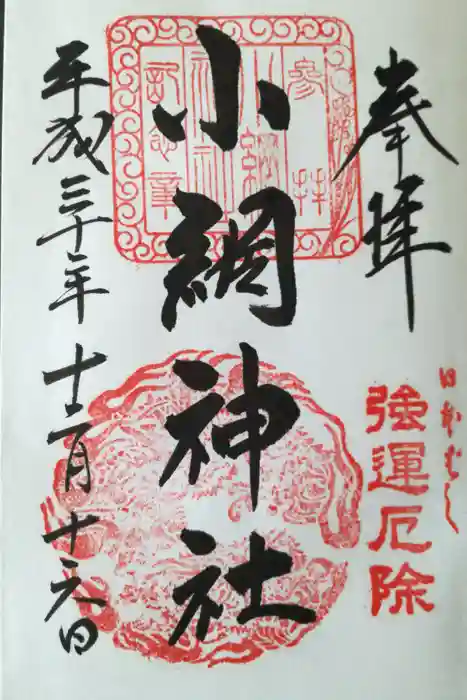 奉拝
日本ばし
強運厄除
小網神社
参拝
小網神社
記念章
平成三十年十二月十六日